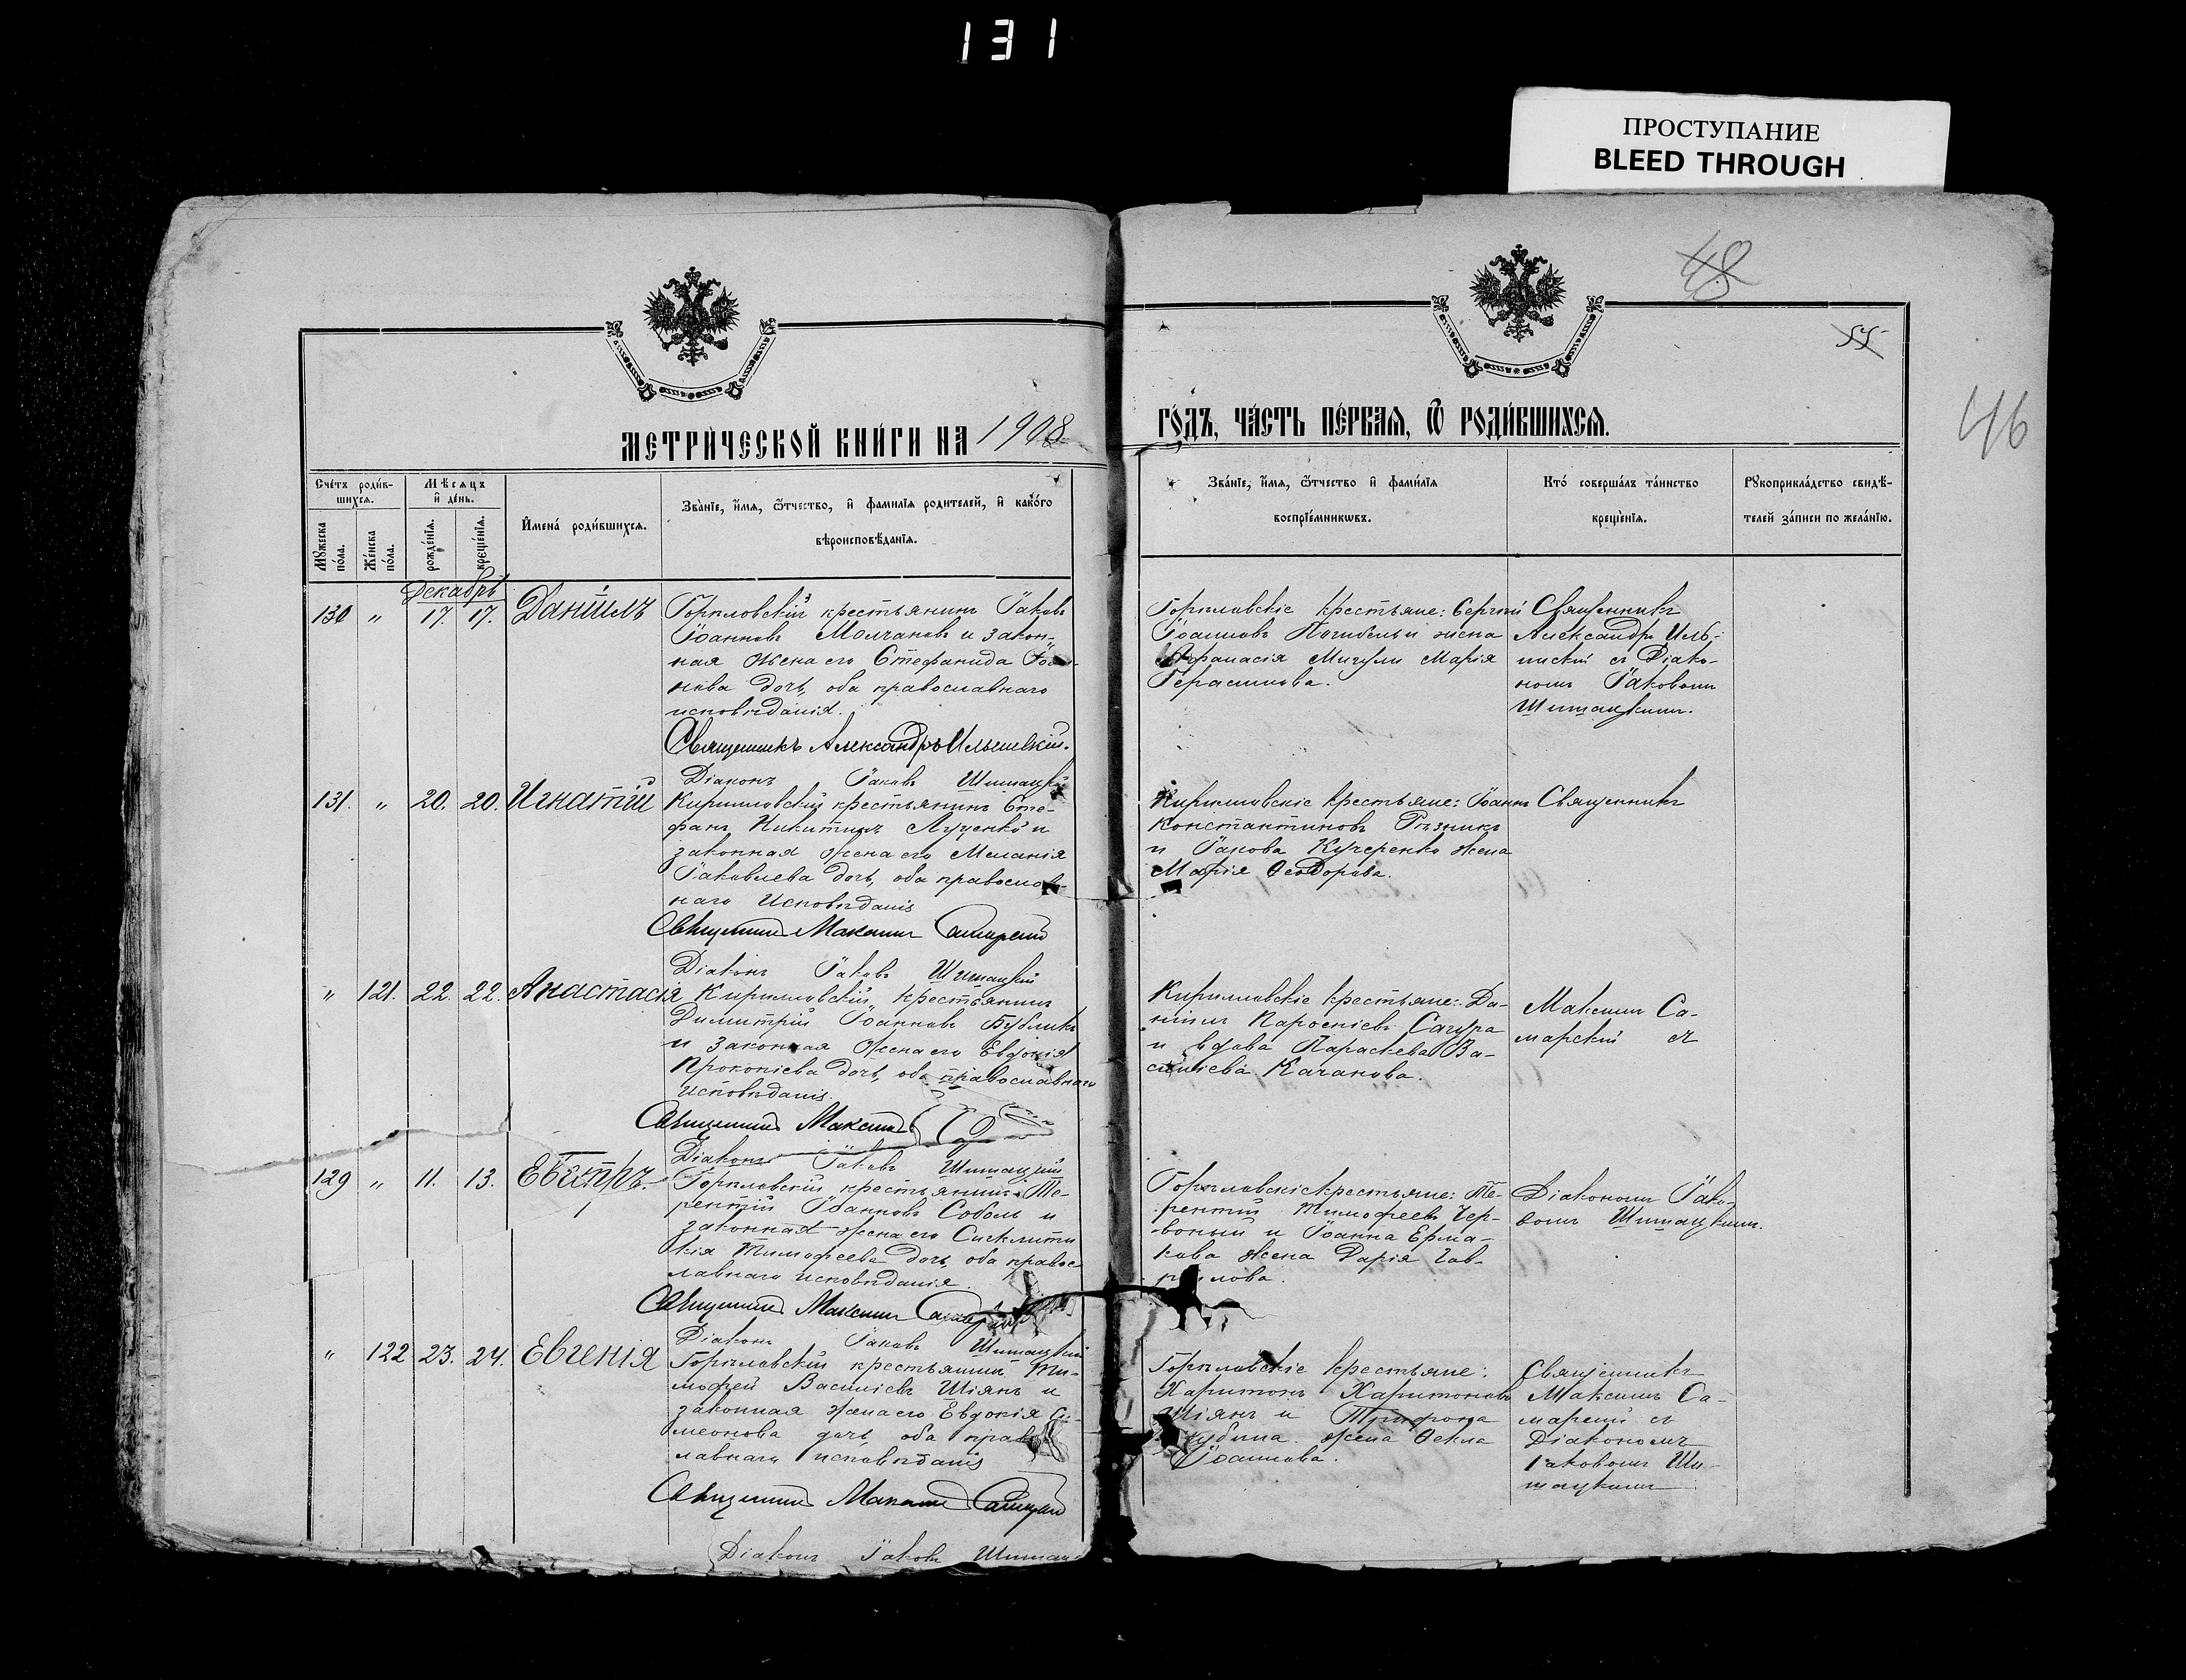 131
ПРОСТУПАНИЕ
BLEED THROUGH
48
55
46
МЕТРИЧЕСКОЙ КНИГИ НА 1908
ГОДЪ, ЧАСТЬ ПЕРВАЯ, Ѿ РОДИВШИХСЯ.
Счетъ родив-
шихся.
Мѣсяцъ
и день.
Мужеска
пола.
Женска
пола.
рожденія.
крещенія.
Имена родившихся.
Званіе, имя, ѿтчество, и фамилія родителей, и какого
вѣроисповѣданія.
Званіе, имя, ѿтчество и фамилія
воспріемниковъ.
Кто совершалъ таинство
крещенія.
Рукоприкладство свидѣ-
телей записи по желанію.
Декабрь
130 " 17. 17. Даніилъ
Гориловскій крестьянинъ Іаковъ
Іоанновъ Молчановъ и закон-
ная жена его Стефанида
нова дочь, оба православнаго
исповѣданія.
Священникъ Александръ Ильинскій.
Діаконъ Іаковъ Шишацкій
Гориловскіе крестьяне: Сергий
Іоанновъ и жена
Афанасія Мигули Марія
Герасимова.
Священникъ
Александръ Иль-
инскій съ Діако-
номъ Іаковомъ
Шишацкимъ.
131. " 20. 20. Игнатій
Кирилловскій крестьянинъ Сте-
фанъ Никитинъ Луценко и
законная жена его Меланія
Іаковлева дочь, оба православ-
наго Исповѣданія
Священникъ Максимъ Самарскій
Діаконъ Іаковъ Шишацкій
Кирилловскіе крестьяне: Іоаннъ
Константиновъ Рѣзникъ
и Іакова Кучеренко жена
Марія Ѳеодорова.
Священникъ
" 121. 22. 22. Анастасія
Кирилловскій крестьянинъ
Димитрій Іоанновъ Бубликъ
и законная жена его Евдокія
Прокопіева дочь, оба православнаго
исповѣданія.
Священникъ Максимъ
Діаконъ Іаковъ Шишацкій
Кирилловскіе крестьяне: Да-
ніилъ Сагура
и вдова Параскева Ва-
силіева Качанова.
Максимъ Са-
марскій съ
129 " 11. 13.
Гориловскій крестьянинъ Те-
рентій Іоанновъ Соболь и
законная жена его Синклити
кія Тимофеева дочь, оба правос
лавнаго исповѣданія.
Священникъ Максимъ
Діаконъ Іаковъ Шишацкій
Гориловскіе крестьяне: Те-
рентій Тимофеевъ Чер-
воный и Іоанна Ерма-
кова жена Дарія Гав-
рилова.
Діакономъ Іако-
вомъ Шишацкимъ.
" 122 23. 24. Евгенія
Гориловскій крестьянинъ Ти-
мофей Василіевъ Шіянъ и
законная жена его Евдокія Си-
меонова дочь, оба правос
лавнаго исповѣданія
Священникъ Максимъ Самарскій
Діаконъ Іаковъ Шишац
Гориловскіе крестьяне:
Харитонъ Харитоновъ
Шіянъ и Трифона
жена Ѳекла
Іоаннова.
Священникъ
Максимъ Са-
марскій съ
Діакономъ
Іаковомъ Ши-
шацкимъ